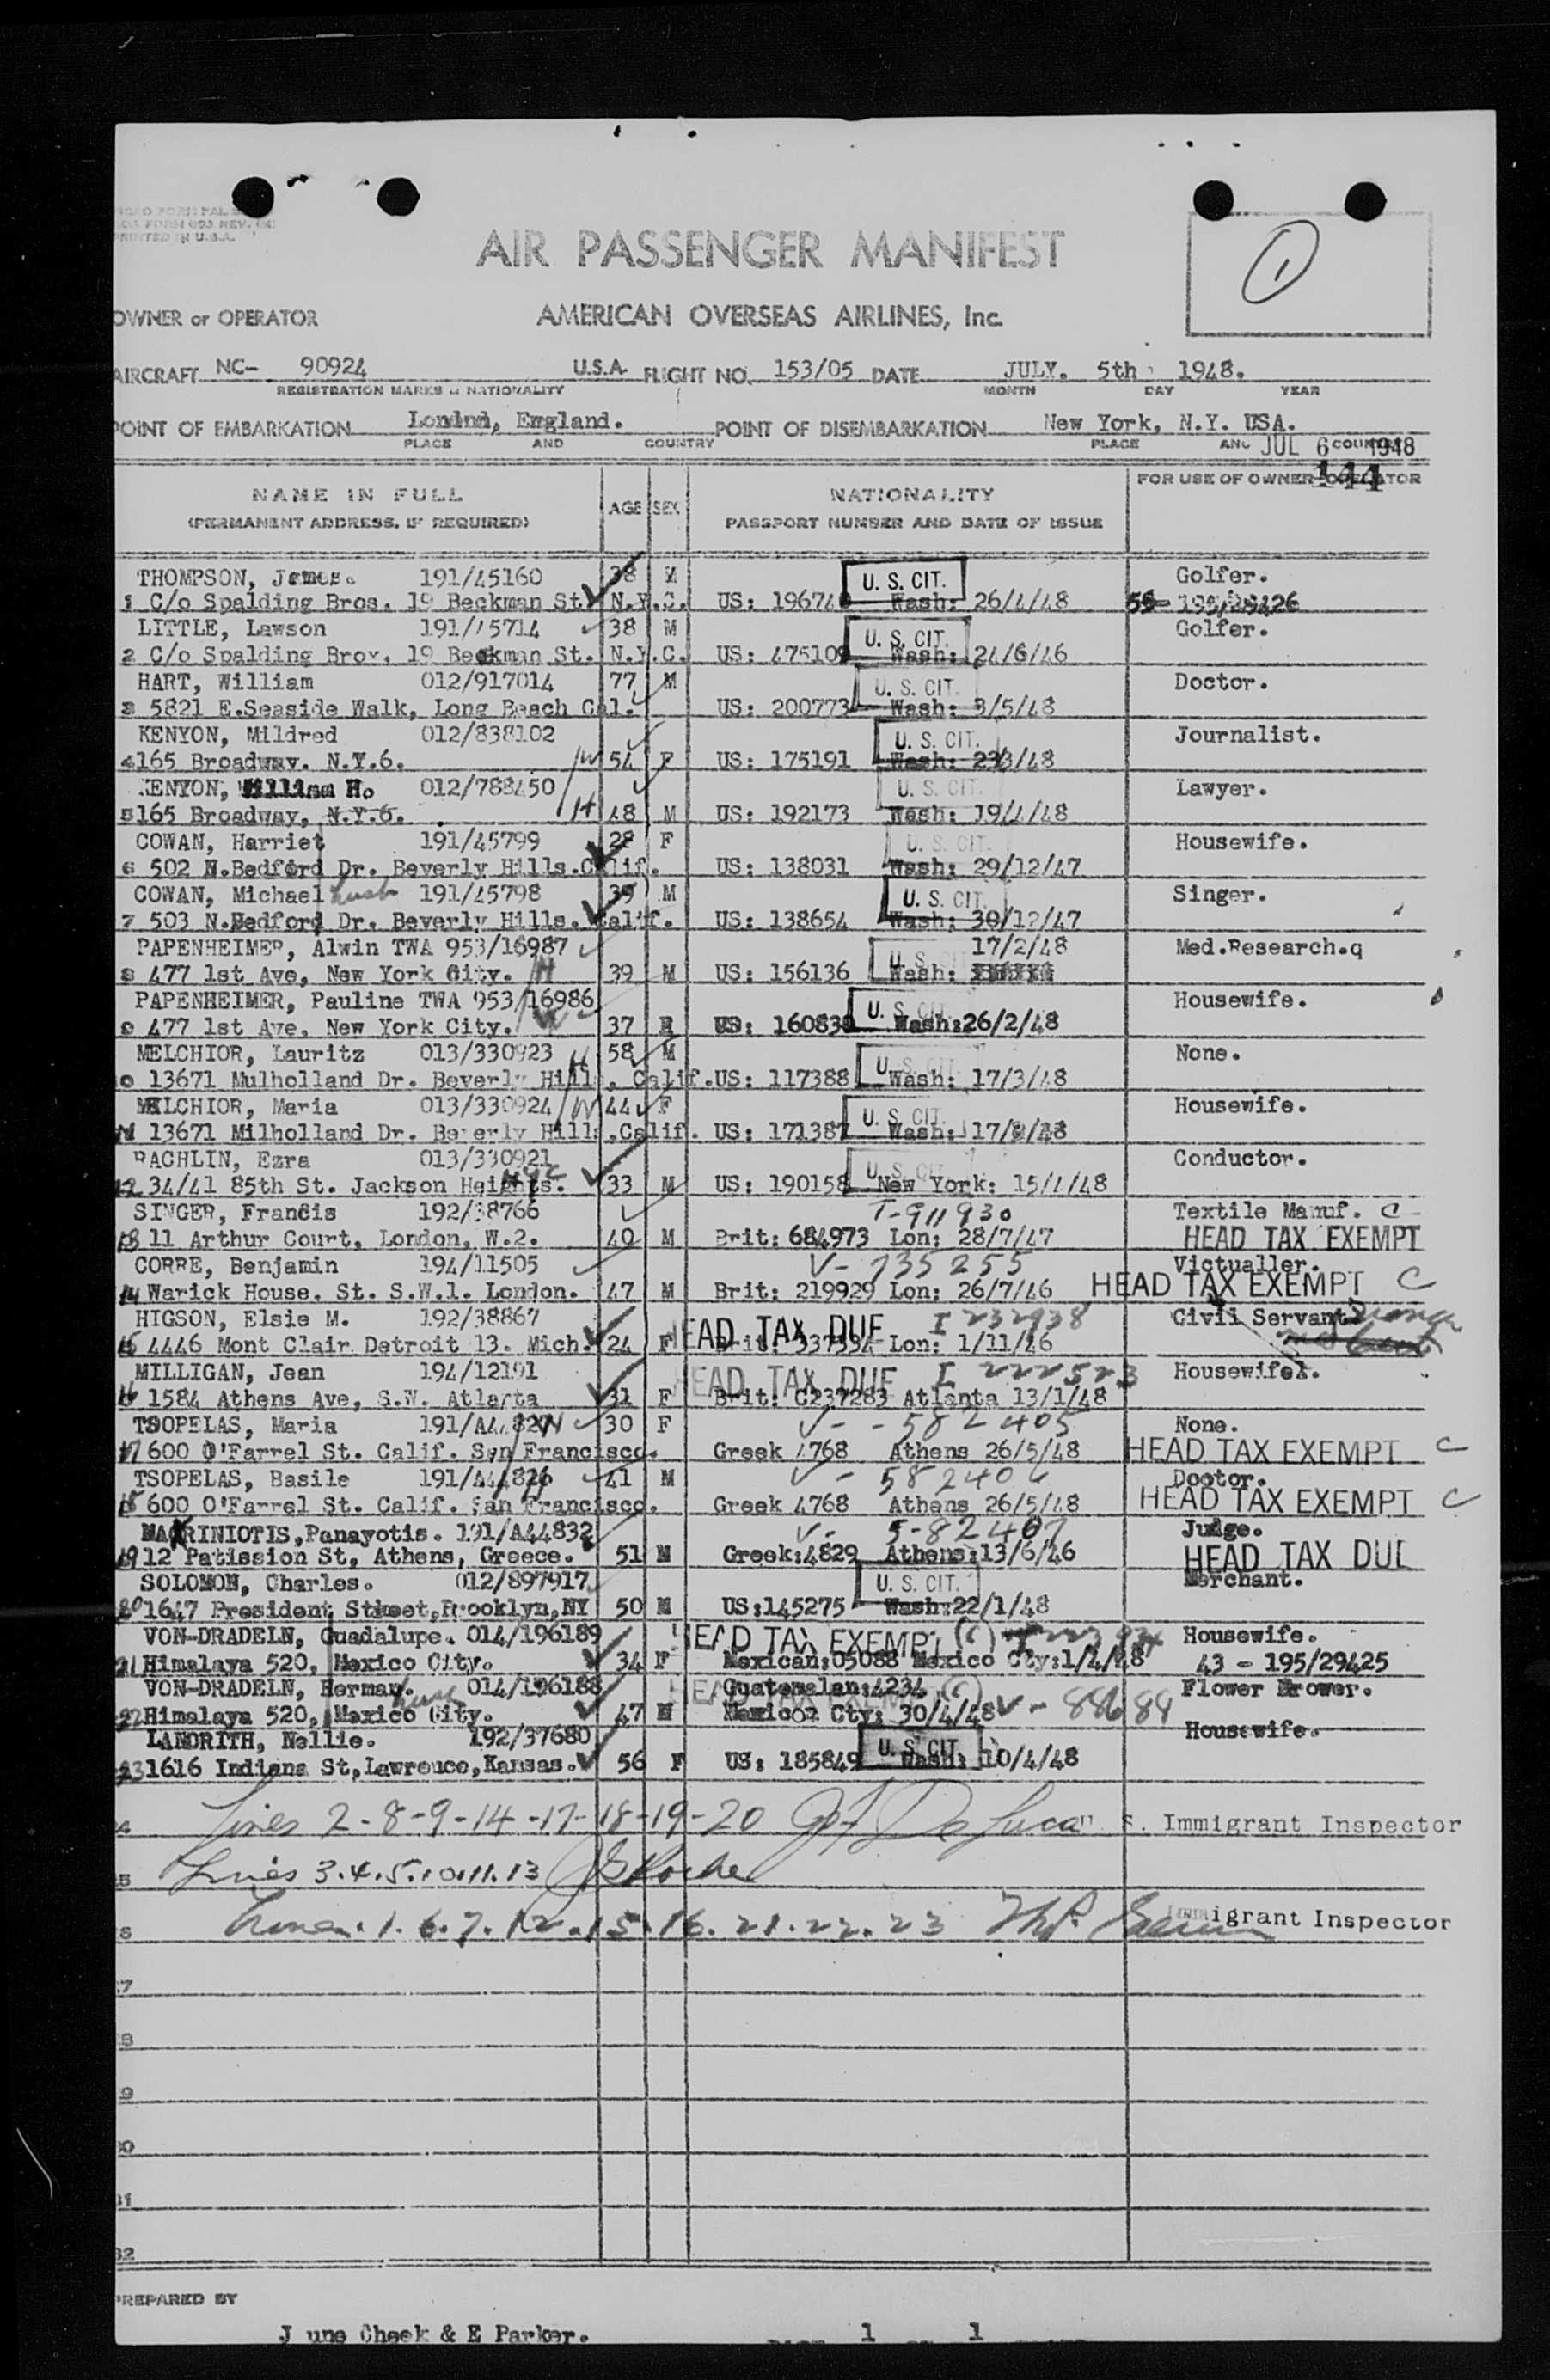 AIR PASSENGER MANIFEST
1
OWNER or OPERATOR AMERICAN OVERSEAS AIRLINES, Inc.
AIRCRAFT NC- 90924 U.S.A. FLIGHT NO. 153/05 DATE JULY. 5th 1948.
REGISTRATION MARKS & NATIONALITY MONTH DAY YEAR
POINT OF EMBARKATION London, England. POINT OF DISEMBARKATION New York, N.Y. USA.
PLACE AND COUNTRY PLACE AND COUNTRY
JUL 6 1948
144
NAME IN FULL AGE SEX NATIONALITY FOR USE OF OWNER OPERATOR
(PERMANENT ADDRESS, IF REQUIRED) PASSPORT NUMBER AND DATE OF ISSUE
THOMPSON, James. 191/45160 38 M U. S. CIT. Golfer.
1 C/o Spalding Bros. 19 Beckman St. N.Y.C. US: Wash: 26/4/48
LITTLE, Lawson 191/45714 38 M U. S. CIT. Golfer.
2 C/o Spalding Brov. 19 Beckman St. N.Y.C. US: 475109 Wash: 24/6/46
HART, William 012/917014 77 M U. S. CIT. Doctor.
3 5821 E.Seaside Walk, Long Beach Cal. US: 200773 Wash: 3/5/48
KENYON, Mildred 012/838102 U. S. CIT. Journalist.
4 165 Broadway. N.Y.6. W 54 F US: 175191 Wash: 23/3/48
KENYON, William H. 012/788450 U. S. CIT. Lawyer.
5 165 Broadway, N.Y.6. H 48 M US: 192173 Wash: 19/4/48
COWAN, Harriet 191/45799 28 F U. S. CIT. Housewife.
6 502 N.Bedford Dr. Beverly Hills.Calif. US: 138031 Wash: 29/12/47
COWAN, Michael husb 191/45798 39 M U. S. CIT. Singer.
7 503 N.Bedford Dr. Beverly Hills. Calif. US: 138654 Wash: 30/12/47
PAPENHEIMER, Alwin TWA 953/16987 17/2/48 Med.Research.q
8 477 1st Ave, New York City. H 39 M US: 156136 U. S. Wash:
PAPENHEIMER, Pauline TWA 953/16986 U. S. CIT. Housewife.
9 477 1st Ave, New York City. W 37 F US: 160838 Wash:26/2/48
MELCHIOR, Lauritz 013/330923 H 58 M U. S. CIT. None.
10 13671 Mulholland Dr. Beverly Hills, Calif. US: 117388 Wash: 17/3/48
MELCHIOR, Maria 013/330924 W 44 F U. S. CIT. Housewife.
11 13671 Milholland Dr. Beverly Hills,Calif. US: 171387 Wash:
RACHLIN, Ezra 013/330921 U. S. CIT. Conductor.
12 34/41 85th St. Jackson Heights. NYC 33 M US: 190158 New York: 15/4/48
SINGER, Francis 192/38766 T-911930 Textile Manuf. C
13 11 Arthur Court, London, W.2. 40 M Brit: 684973 Lon: 28/7/47 HEAD TAX EXEMPT
CORRE, Benjamin 194/11505 V-735255 Victualler.
14 Warick House. St. S.W.1. London. 47 M Brit: 219929 Lon: 26/7/46 HEAD TAX EXEMPT C
HIGSON, Elsie M. 192/38867 HEAD TAX DUE I 232938 Civil Servant
15 4446 Mont Clair Detroit 13. Mich. 24 F Brit: 337334 Lon: 1/11/46
MILLIGAN, Jean 194/12191 HEAD TAX DUE I 222523 Housewifex.
16 1584 Athens Ave, S.W. Atlanta 31 F Brit: C237283 Atlanta 13/1/48
TSOPELAS, Maria 191/A44827 W 30 F V- -582405 None.
17 600 O'Farrel St. Calif. San Francisco. Greek 4768 Athens 26/5/48 HEAD TAX EXEMPT C
TSOPELAS, Basile 191/A44826 41 M V - 582406 Doctor.
18 600 O'Farrel St. Calif. San Francisco. H Greek 4768 Athens 26/5/48 HEAD TAX EXEMPT C
MAKRINIOTIS,Panayotis. 191/A44832 V- 5-82407 Judge.
19 12 Patission St, Athens, Greece. 51 M Greek:4829 Athens:13/6/46 HEAD TAX DUE
SOLOMON, Charles. 012/897917 U. S. CIT. Merchant.
20 1647 President Street,Brooklyn,NY 50 M US:145275 Wash:22/1/48
VON-DRADELN, Guadalupe. 014/196189 HEAD TAX EXEMPT (C) Housewife.
21 Himalaya 520, Mexico City. 34 F Mexican:05088 Mexico Cty:1/4/48 43 - 195/29425
VON-DRADELN, Herman. husb 014/196188 HEAD TAX EXEMPT (C) Guatemalan:4234 Flower Grower.
22 Himalaya 520, Mexico City. 47 M Mexico Cty: 30/4/48 V - 88688
LANDRITH, Nellie. 192/37680 U. S. CIT. Housewife.
23 1616 Indiana St,Lawrence,Kansas. 56 F US: 185849 Wash: 10/4/48
Lines 2-8-9-14-17-18-19-20 De Luca U. S. Immigrant Inspector
Lines 3.4.5.10.11.13
Lines. 1. 6. 7. 12. 15. 16. 21. 22. 23 Immigrant Inspector
PREPARED BY
June Cheek & E Parker. 1 1